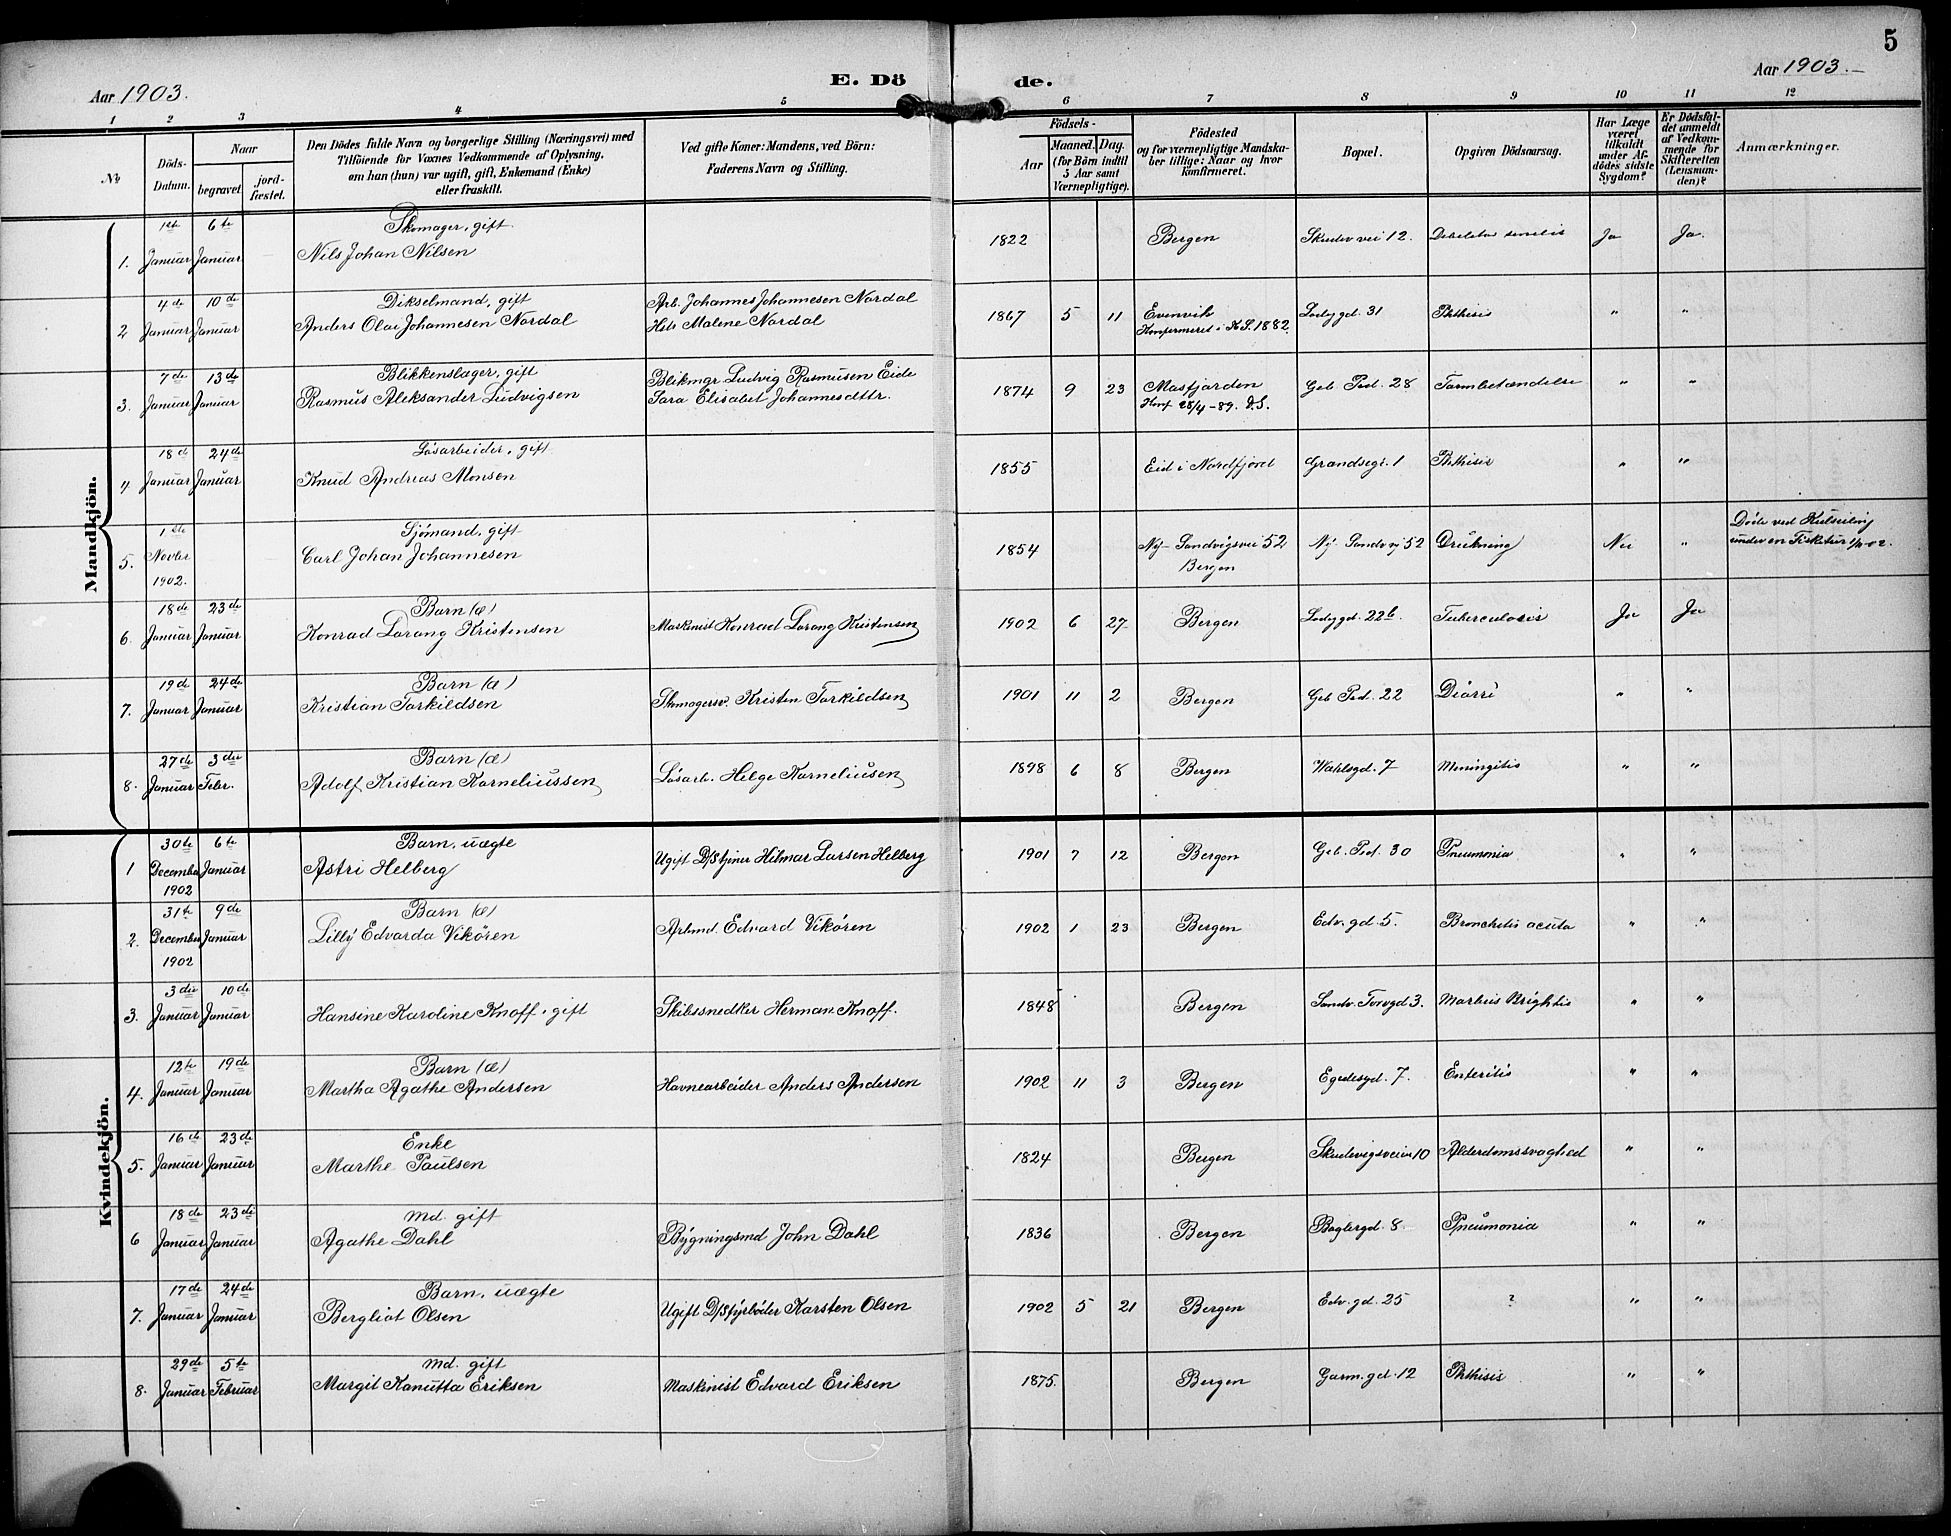 5
Aar 1903.
E. Dö
de.
Aar 1903.
1 2 3 4 5 6 7 8 9 10 11 12
№
Döds-Datum.
Naar
begravet.
jord-fæstet.
Den Dödes fulde Navn og borgerlige Stilling (Næringsvei) med
Tilföiende for Voxnes Vedkommende af Oplysning,
om han (hun) var ugift, gift, Enkemand (Enke)
eller fraskilt.
Ved gifte Koner: Mandens, ved Börn:
Faderens Navn og Stilling.
Födsels-
Aar
Maaned. Dag.
(for Börn indtil
5 Aar samt
Værnepligtige).
Födested
og for værnepligtige Mandska-
ber tillige: Naar og hvor
konfirmeret.
Bopæl.
Opgiven Dödsaarsag.
Har Læge
været
tilkaldt
under Af-
dödes sidste
Sygdom?
Er Dödsfal-
det anmeldt
af Vedkom-
mende for
Skifteretten
(Lensman-
den)?
Anmærkninger.
Mandkjön.
1. 1ste Januar 6te Januar Skomager, gift Nils Johan Nilsen 1822 Bergen Skudev vei 12. Debilitas senilis Ja Ja.
2 4de Januar 10de Januar Dikselmand, gift Anders Olai Johannesen Nordal Arb. Johannes Johannesen Nordal Malene Nordal 1867 5 11 Evenvik Konfirmeret i 1882. Ladegd. 31 Phthisis " "
3. 7de Januar 13de Januar Blikkenslager, gift Rasmus Aleksander Ludvigsen Blikmgr Ludvig Rasmusen Eide Sara Elisabet Johannesdttr. 1874 9 23 Masfjorden Konf 28/4-89. Geb Pod. 28 Tarmbetændelse " "
4 18de Januar 24de Januar Løsarbeider, gift Knud Andreas Monsen 1855 Eid i Nordfjord Grandsegr. 1 Phthisis " "
5. 1ste Novbr 1902. Sjømand, gift Carl Johan Johannesen 1854 Ny-Sandvigsvei 52 Bergen Ny-Sandv vj 52 Drukning Nei " Døde ved Kulseiling under en Fisketur 1/11-02.
6. 18de Januar 23de Januar Barn (æ) Konrad Lorang Kristensen Maskinist Konrad Lorang Kristensen 1902 6 27 Bergen Ladegd. 22b. Tuberculosis Ja Ja
7. 19de Januar 24de Januar Barn (æ) Kristian Torkildsen Skmagersv. Kristen Torkildsen 1901 11 2 Bergen Geb Pod. 22 Diarri " "
8. 27de Januar 3die Febr. Barn (æ) Adolf Kristian Korneliussen Løsarb. Helge Korneliusen 1898 6 8 Bergen Wahlsgd. 7 Meningitis " "
Kvindekjön.
1 30te December 1902 6te Januar Barn, uægte Astri Helberg Ugift D/S tjener Hilmar Larsen Helberg 1901 7 12 Bergen Geb. Pod. 30 Pneumonia " "
2. 31te December 1902 9de Januar Barn (æ) Lilly Edvarda Vikören Arbmd. Edvard Vikören 1902 1 23 Bergen Edv. gd. 5. Bronchitis acuta " "
3. 3die Januar 10de Januar Hansine Karoline Knoff, gift Skibssnedker Herman Knoff. 1848 Bergen Sandv. Torvgd 3. Morbus Brightis " "
4. 12te Januar 19de Januar Barn (æ) Martha Agathe Andersen Havnearbeider Anders Andersen 1902 11 3 Bergen Egedesgd. 7. Enteritis " "
5. 16de Januar 23de Januar Enke Marthe Paulsen 1824 Bergen Skudevigsveien 10 Alderdomssvaghed " "
6 18de Januar 23de Januar Md. gift Agathe Dahl Bygningsmd John Dahl 1836 Bergen Baglergd. 8 Pneumonia " "
7. 17de Januar 24de Januar Barn, uægte Bergliot Olsen Ugift D/S fyrbøder Karsten Olsen 1902 5 21 Bergen Edv. gd. 25 ? " "
8. 29de Januar 5te Februar Md. gift Margit Kanutta Eriksen Maskinist Edvard Eriksen 1875. Bergen Garm. gd. 12 Phthisis " "